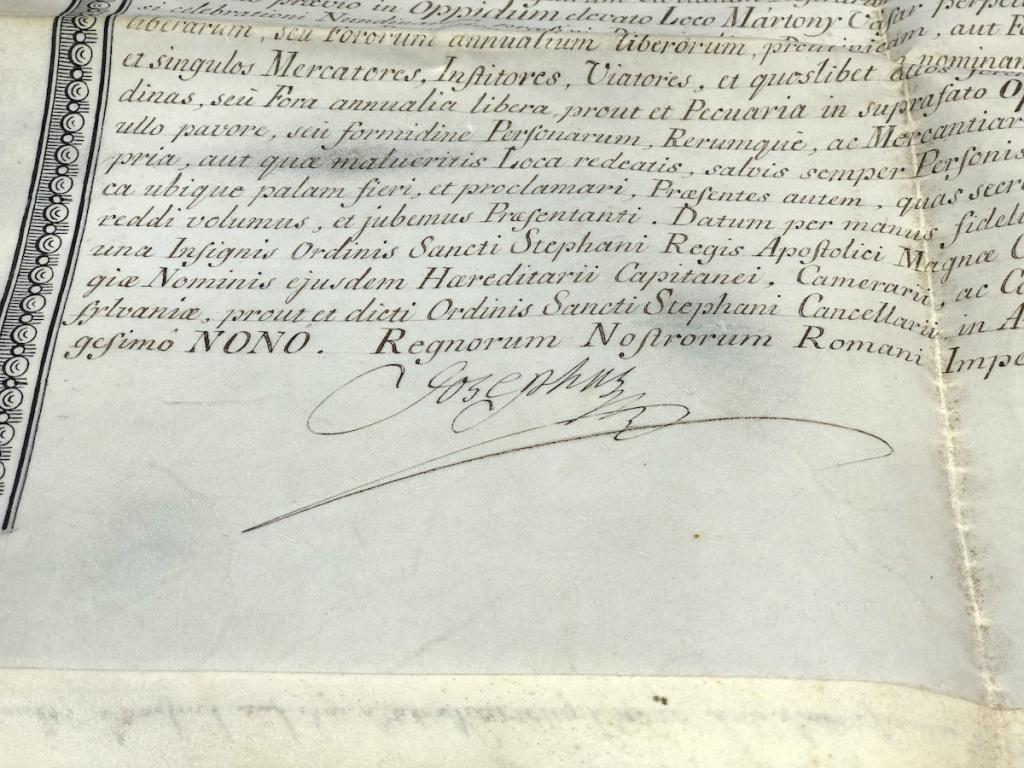 prævio in Oppidum elevato Loco Mártony Vásár perpet
si celebrationi Nundin
liberarum, seu Fororum annualium liberorum, aut Fo
et singulos Mercatores, Institores, Viatores, et quoslibet nominan
dinas, seu Fora annualia libera, prout et Pecuaria in suprafato Op
ullo pavore, seu formidine Personarum, Rerumque, ac Mercantiar
pria, aut quæ malueritis Loca redeatis, salvis semper Personis
ca ubique palam fieri, et proclamari, Præsentes autem, quas secr
reddi volumus, et jubemus Præsentanti. Datum per manus fideli
una Insignis Ordinis Sancti Stephani Regis Apostolici Magnæ C
giæ Nominis ejusdem Hæreditarii Capitanei, Camerarii, ac Co
sylvaniæ, prout et dicti Ordinis Sancti Stephani Cancellarii in A
gesimô NONÔ. Regnorum Nostrorum Romani Impe
Josephus